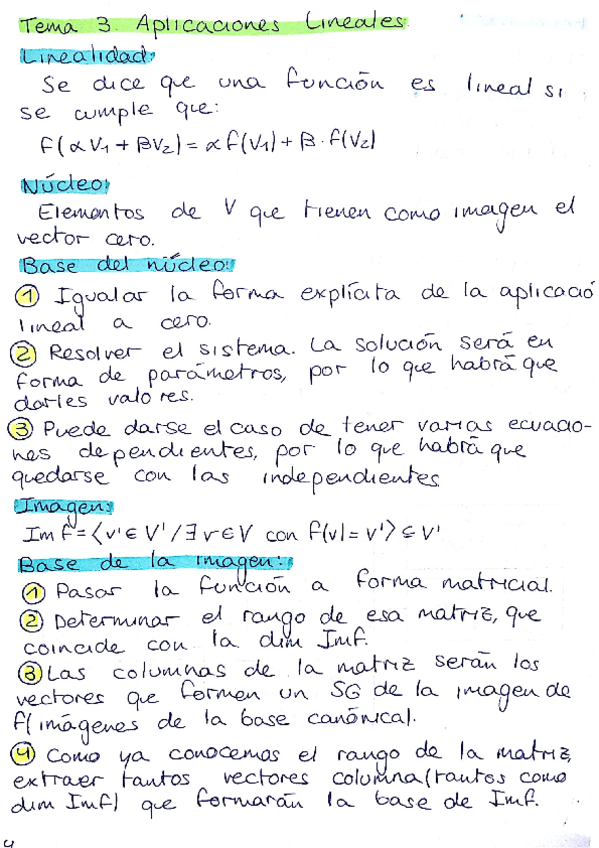 Tema 3. Aplicaciones Lineales.
Linealidad:
Se dice que una función es lineal si
se cumple que:
f(αV₁+βV₂)=αf(V₁)+β·f(V₂)
Núcleo:
Elementos de V que tienen como imagen el
vector cero.
Base del núcleo:
① Igualar la forma explícita de la aplicació
lineal a cero.
② Resolver el sistema. La solución será en
forma de parámetros, por lo que habrá que
darles valores.
③ Puede darse el caso de tener varias ecuacio-
nes dependientes, por lo que habrá que
quedarse con las independientes
Imagen:
Im f = ⟨v'∈V'/∃v∈V con f(v)=v'⟩⊆V'
Base de la imagen:
① Pasar la función a forma matricial.
② Determinar el rango de esa matriz, que
coincide con la dim Imf.
③ Las columnas de la matriz serán los
vectores que formen un SG de la imagen de
f(imágenes de la base canónica).
④ Como ya conocemos el rango de la matriz,
extraer tantos vectores columna (tantos como
dim Imf) que formarán la base de Imf.
4